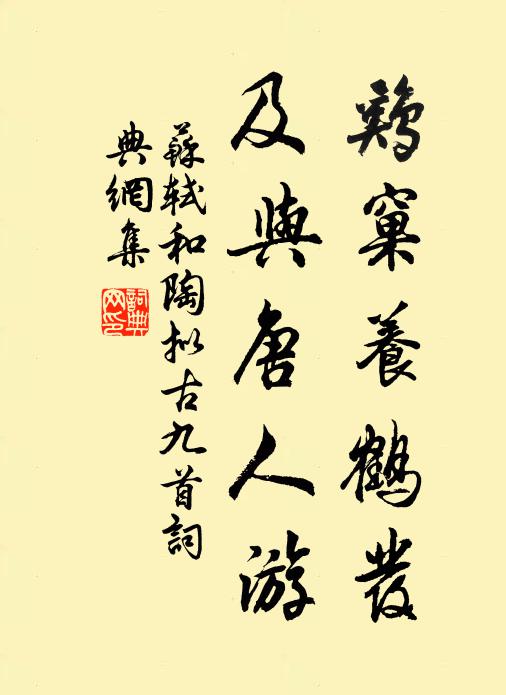 鷄窠養鶴發
及與唐人游
蘇轼和陶拟古九首詞
典網集
詞典
网印